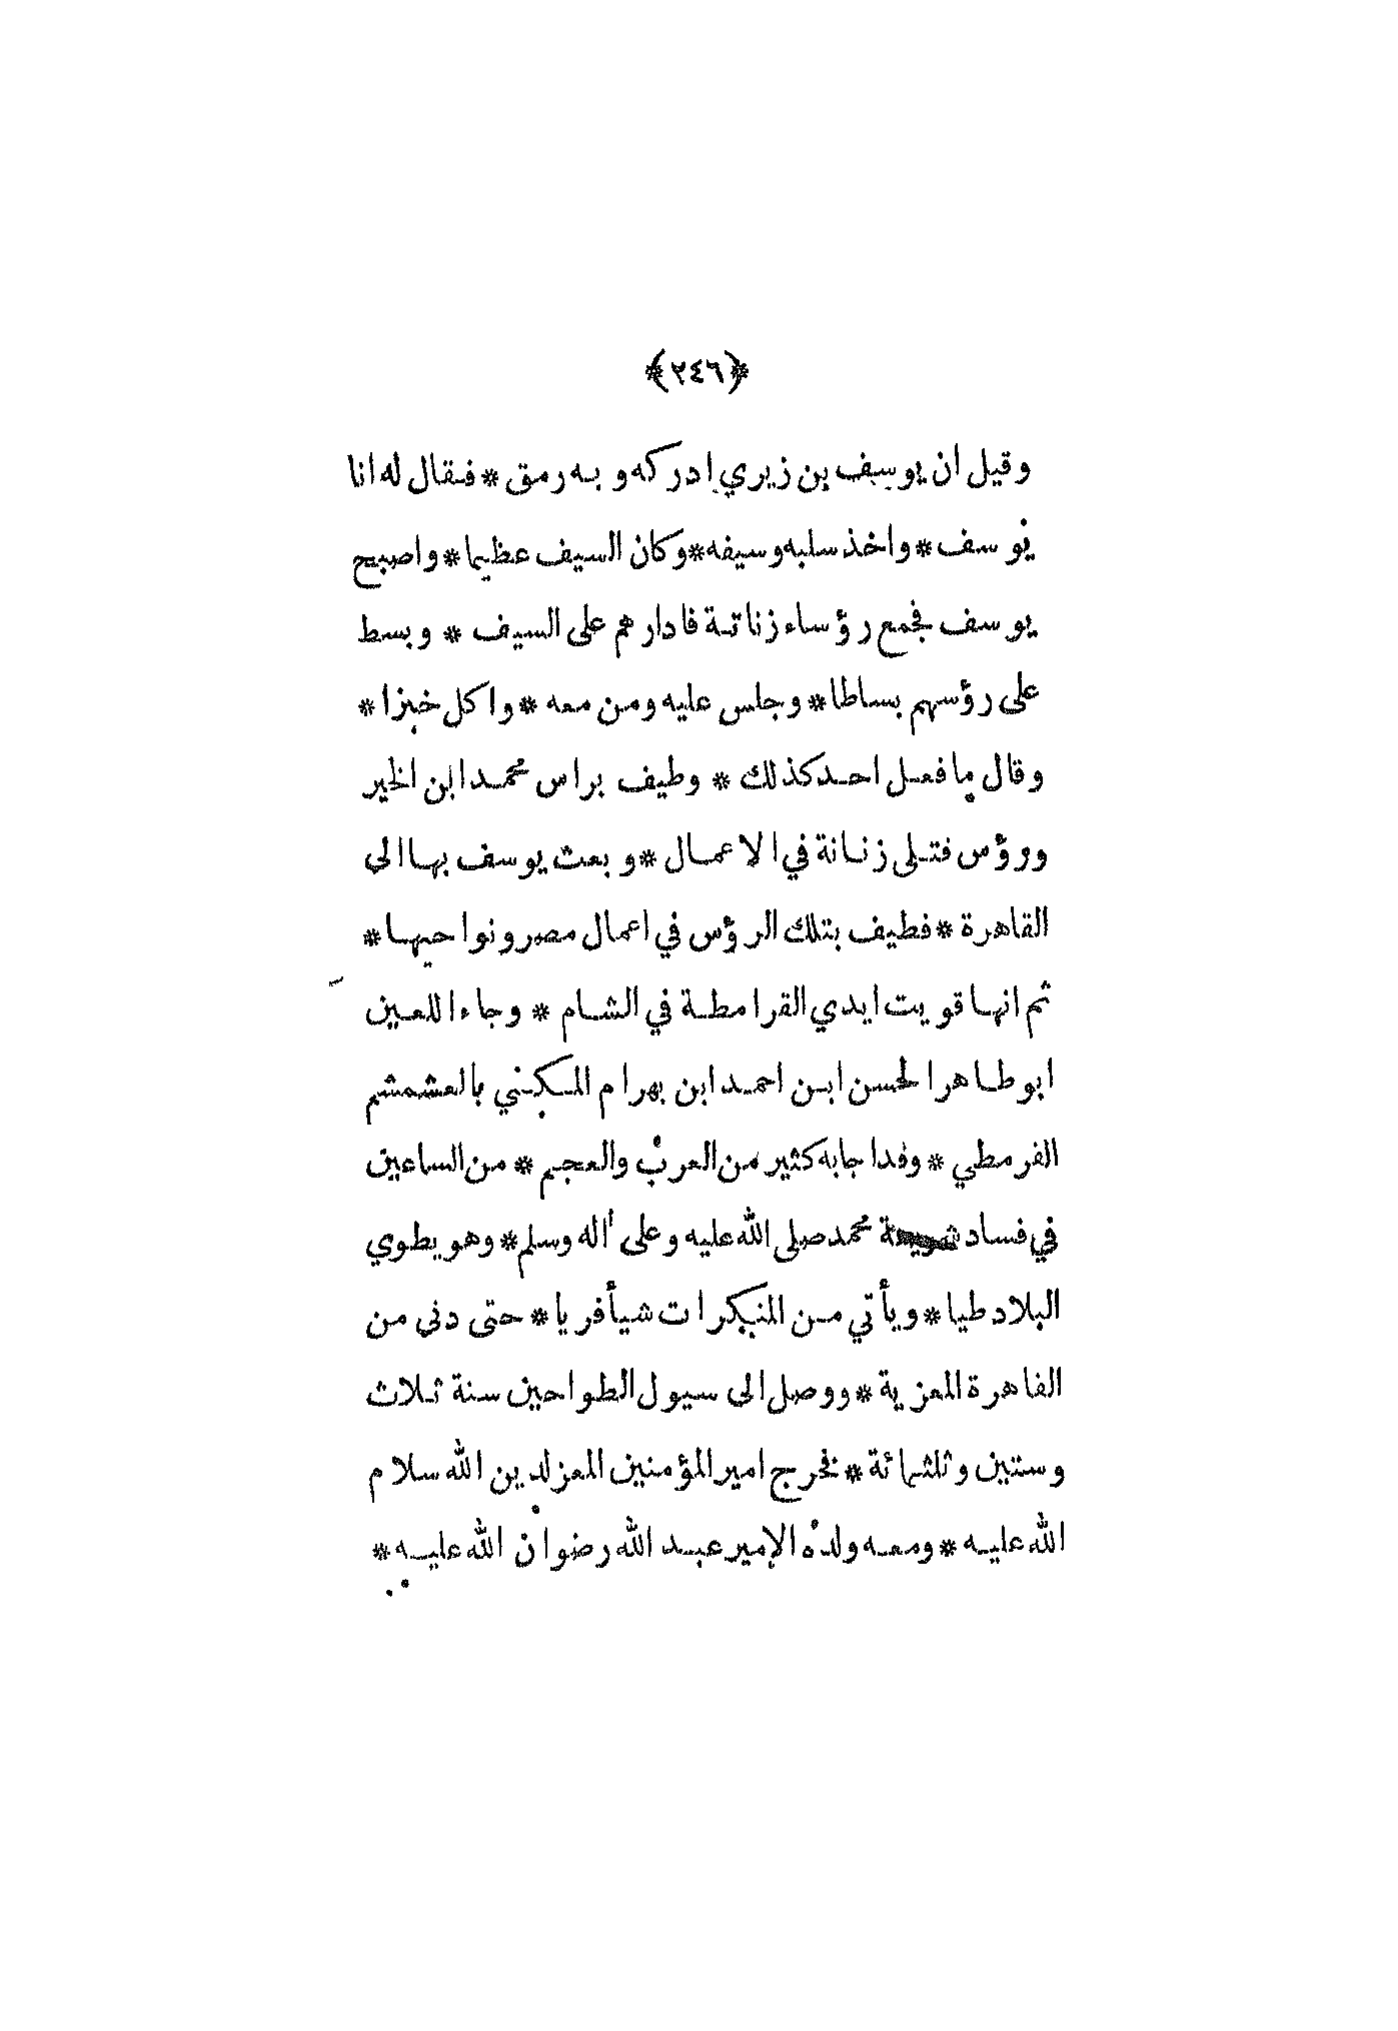 ﴿٢٤٦﴾
وقيل ان يوسف بن زيري ادركه وبه رمق * فقال له انا
يوسف * واخذ سلبه وسيفه * وكان السيف عظيما * واصبح
يوسف فجمع رؤساء زناتة فادارهم على السيف * وبسط
على رؤسهم بساطا * وجلس عليه ومن معه * واكل خبزا *
وقال ما فعل احد كذلك * وطيف براس محمد ابن الخير
ورؤس فتلى زنانة في الاعمال * وبعث يوسف بها الى
القاهرة * فطيف بتلك الرؤس في اعمال مصر ونواحيها *
ثم انها قويت ايدي القرامطة في الشام * وجاء اللعين
ابو طاهر الحسن ابن احمد ابن بهرام المكنى بالعشمشم
الفرمطي * وفدا جابه كثير من العرب والعجم * من الساعين
في فساد شريعة محمد صلى الله عليه وعلى أله وسلم * وهو يطوي
البلاد طيا * ويأتي من المنكرات شيأ فريا * حتى دنى من
الفاهرة المعزية * ووصل الى سيول الطواحين سنة ثلاث
وستين وثلثمائة * فخرج امير المؤمنين المعز لدين الله سلام
الله عليه * ومعه ولده الامير عبد الله رضوان الله عليه *